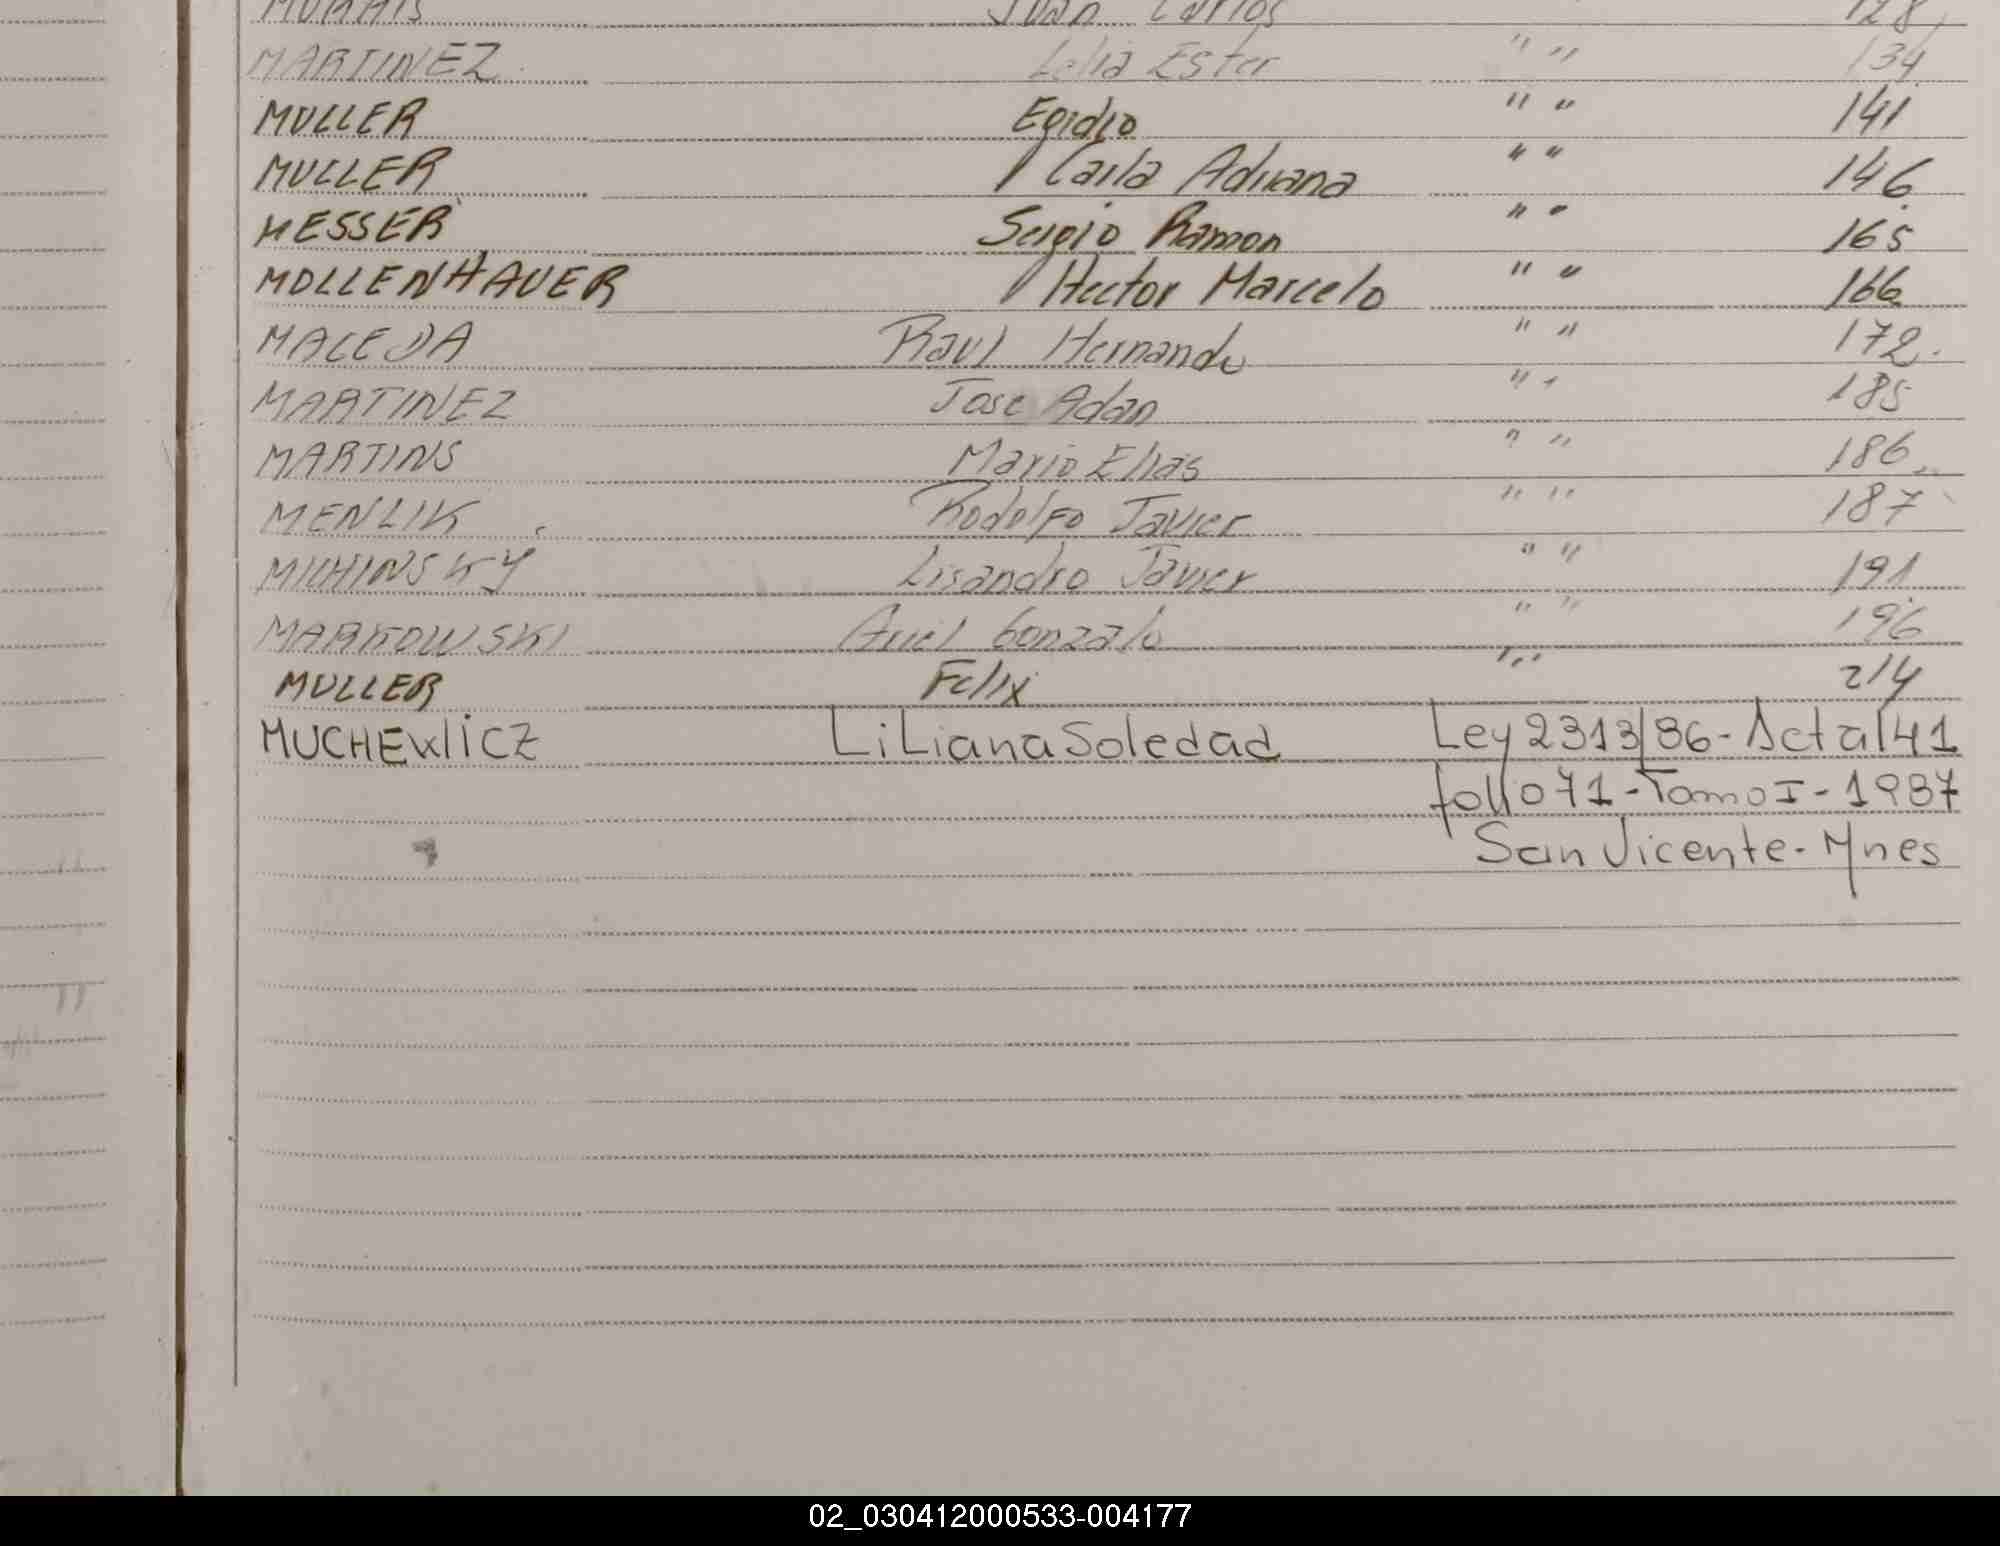 MORAIS Juan Carlos 128
MARTINEZ Lelia Ester " " 134
MULLER Egidio " " 141
MULLER Carla Adriana " " 146
MESSER Sergio Ramon " " 165
MOLLENHAUER Hector Marcelo " " 166
MACEDA Raul Hernando " " 172
MARTINEZ Jose Adan " " 185
MARTINS Mario Elias " " 186
MENLIK Rodolfo Javier " " 187
MICHINSKY Lisandro Javier " " 191
MARKOWSKI Ariel Gonzalo " " 196
MULLER Felix " " 214
MUCHEWICZ Liliana Soledad Ley 2313/86-Acta 141
folio 71-Tomo I-1987
San Vicente-Mnes
02_030412000533-004177